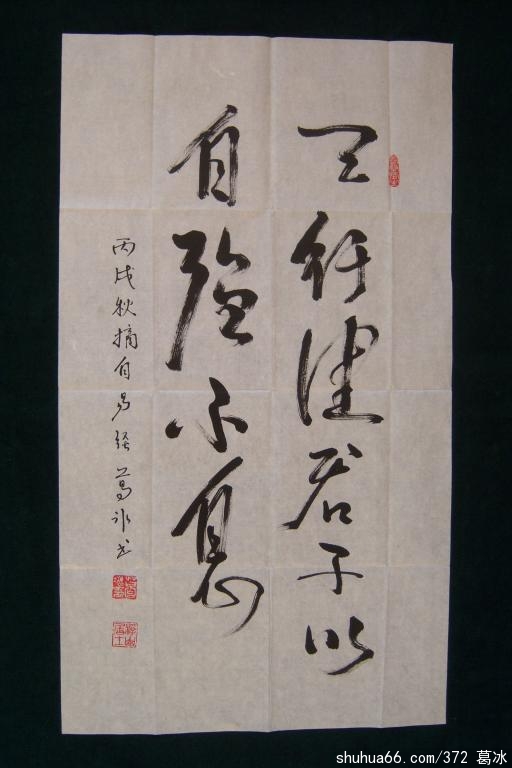 天行健君子以
自强不息
丙戌秋摘自易经葛冰书
shuhua66.com/372 葛冰